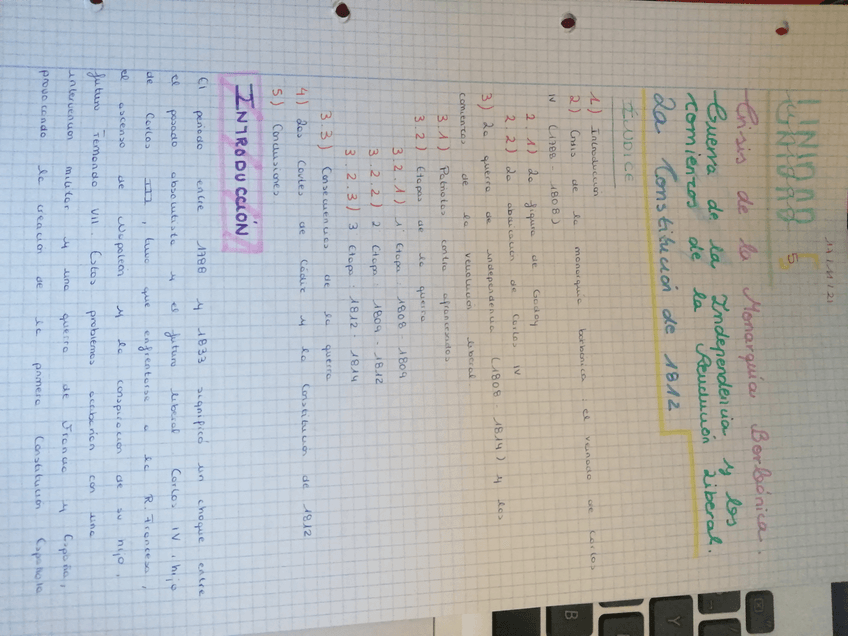 17/11/21
UNIDAD 5
Crisis de la Monarquía Borbónica.
Guerra de la Independencia y los
comienzos de la Revolución Liberal.
La Constitución de 1812
ÍNDICE
1) Introducción
2) Crisis de la monarquía borbónica. el reinado de Carlos
IV (1788-1808)
2.1) La figura de Godoy
2.2) La abdicación de Carlos IV
3) La guerra de independencia (1808-1814) y los
comienzos de la revolución liberal
3.1) Patriotas contra afrancesados
3.2) Etapas de la guerra
3.2.1) 1 Etapa 1808-1809
3.2.2) 2 Etapa 1809-1812
3.2.3) 3 Etapa: 1812-1814
3.3) Consecuencias de la guerra
4) Las Cortes de Cádiz y la Constitución de 1812
5) Conclusiones
INTRODUCCIÓN
El periodo entre 1788 y 1833 significó un choque entre
el pasado absolutista y el futuro liberal Carlos IV, hijo
de Carlos III, tuvo que enfrentarse a la R. Francesa,
el ascenso de Napoleón y la conspiración de su hijo,
futuro Fernando VII Estos problemas acabarían con una
intervención militar y una guerra de Francia y España,
provocando la creación de la primera Constitución Española
B
Y